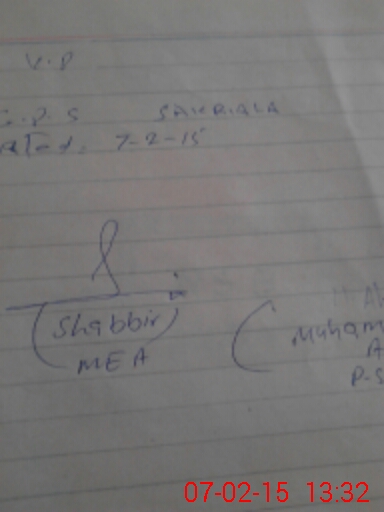 V.P
G.P.S SAKRIALA
ated. 7-2-15
(Shabbir)
MEA
(Muham
A
P-S
07-02-15 13:32